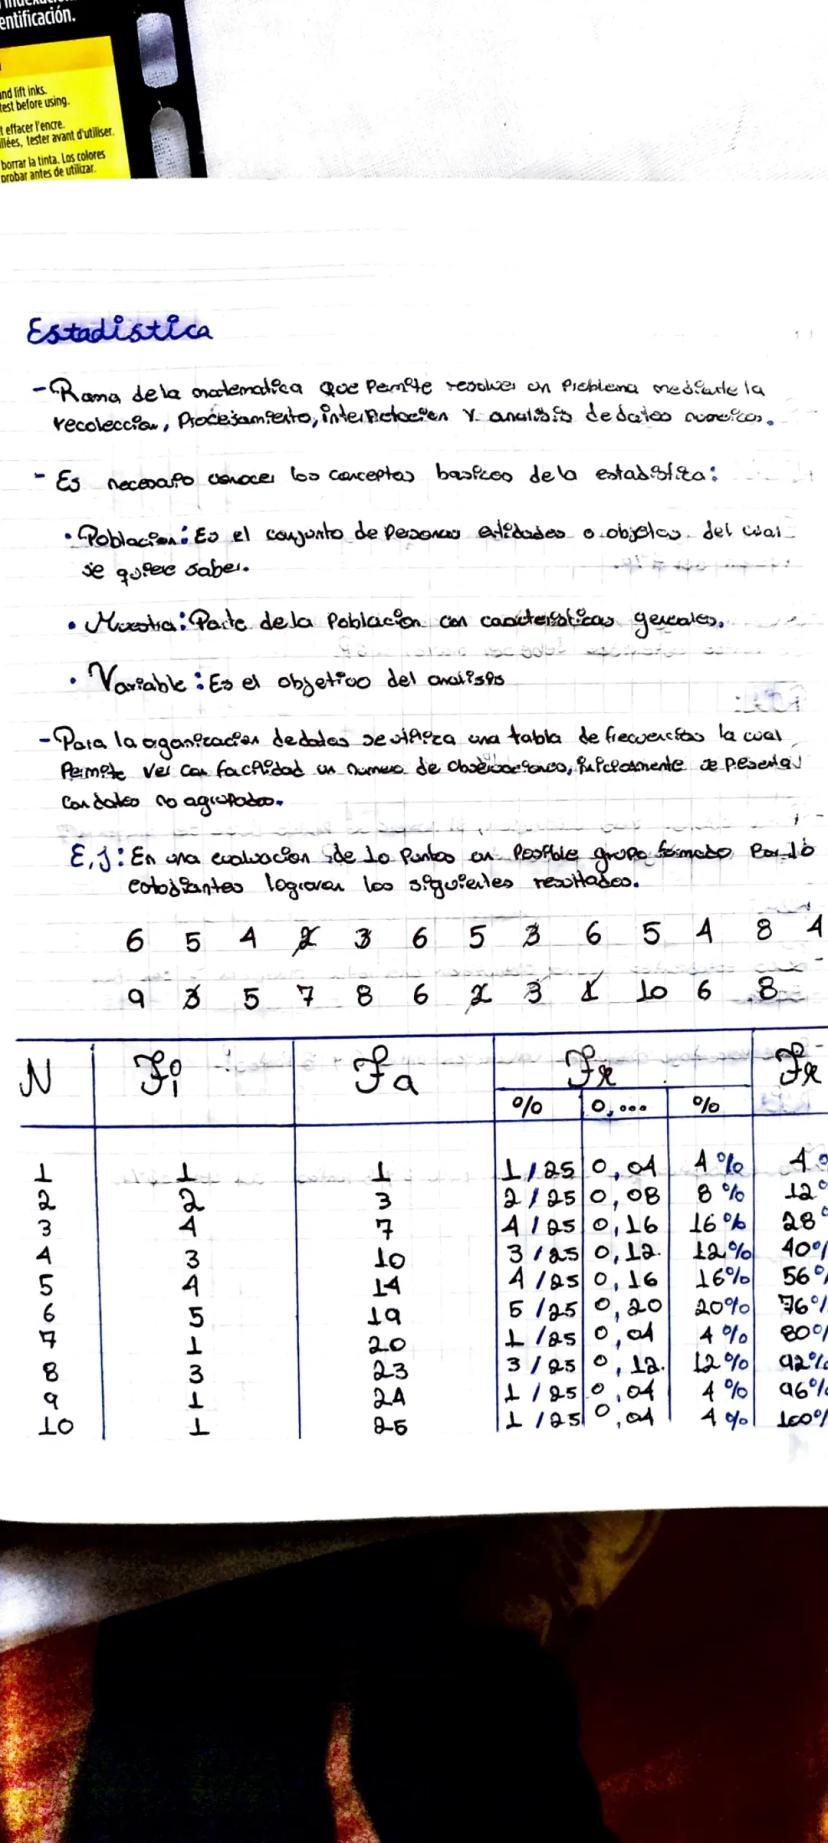 entificación.
and lift inks.
test before using.
t effacer l'encre.
illées, tester avant d'utiliser.
borrar la tinta. Los colores
probar antes de utilizar.
Estadistica
- Rama de la matematica que Permite resolver un Problema mediante la
recoleccion, Procesamiento, interpretacion y analisis de datos numericos.
- Es necesario conocer los conceptos basicos de la estadistica:
• Poblacion: Es el conjunto de Personas entidades o objetos del cual
se quiere saber.
• Muestra: Parte de la Poblacion con caracteristicas generales.
• Variable: Es el objetivo del analisis
- Para la organizacion de datos se utiliza una tabla de frecuencias la cual
Permite ver con facilidad un numero de observaciones, inicialmente se presenta
con datos no agrupados.
E.J: En una evaluacion de 10 Puntos un Posible grupo formado Por
estudiantes lograron los siguientes resultados.
6 5 4 2 3 6 5 3 6 5 4 8 4
9 3 5 7 8 6 2 3 1 10 6 8
N Fi Fa Fr Fr
% 0,... %
1 1 1 1/25 0,04 4% 4%
2 2 3 2/25 0,08 8% 12%
3 4 7 4/25 0,16 16% 28%
4 3 10 3/25 0,12. 12% 40%
5 4 14 4/25 0,16 16% 56%
6 5 19 5/25 0,20 20% 76%
7 1 20 1/25 0,04 4% 80%
8 3 23 3/25 0,12. 12% 92%
9 1 24 1/25 0,04 4% 96%
10 1 25 1/25 0,04 4% 100%